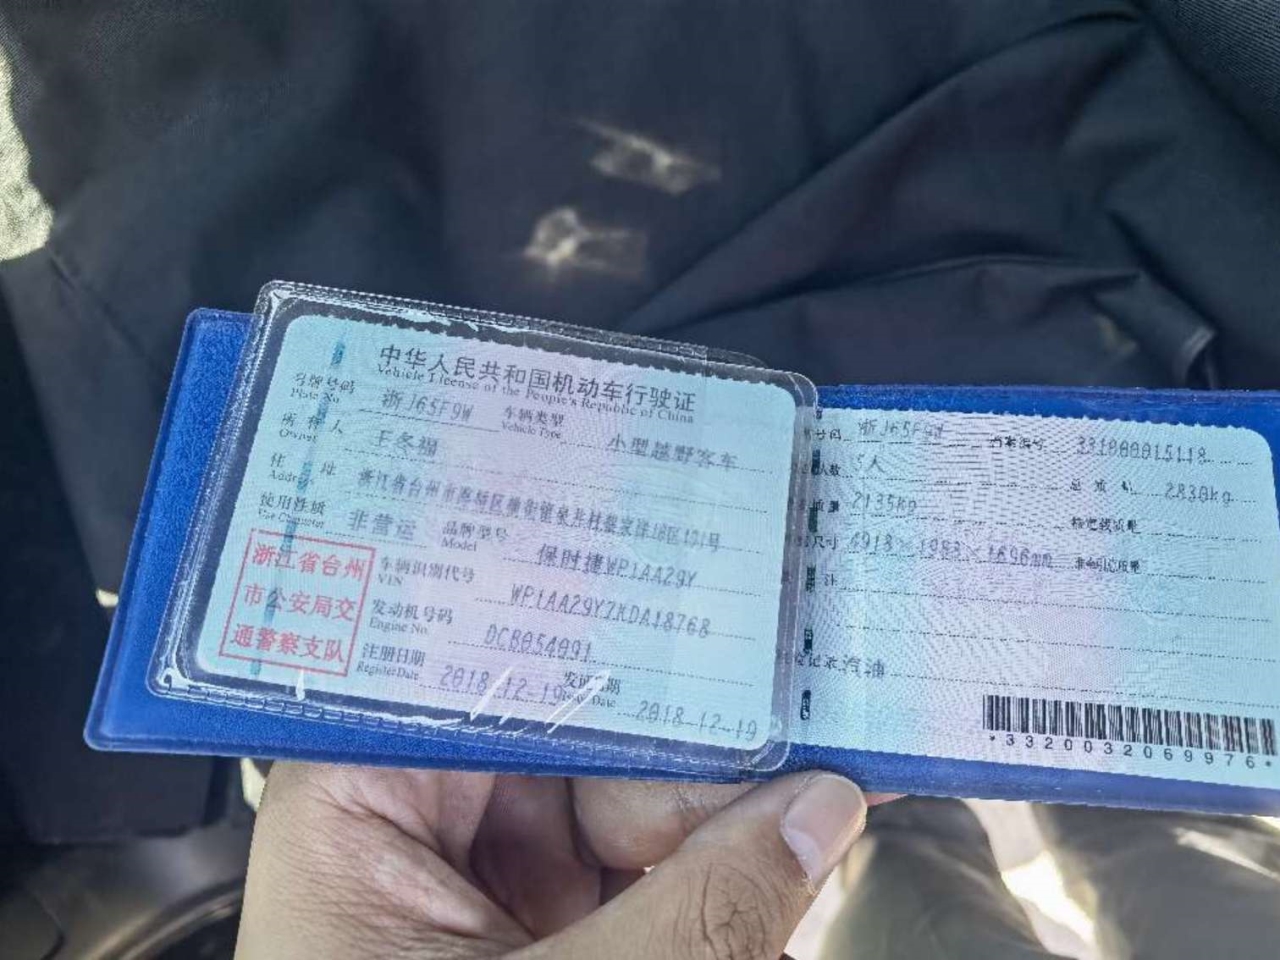 中华人民共和国机动车行驶证
Vehicle License of the People's Republic of China
号牌号码 浙J65F9W 车辆类型 小型越野客车
Plate No. Vehicle Type
所有人 王冬福
Owner
住址 浙江省台州市
Address
使用性质 非营运 品牌型号 保时捷WP1AA29Y
Use Character Model
浙江省台州
市公安局交
通警察支队
车辆识别代号 WP1AA29Y7KDA18768
VIN
发动机号码 DCB054091
Engine No.
注册日期 2018-12-19 发证日期 2018-12-19
Register Date Issue Date
号码 浙J65F9W 档案编号 331000015118
人数 5人 总质量 2830kg
质量 2135kg 核定载质量
尺寸 4918×1983×1696mm 准牵引总质量
注
记录 汽油
*3320032069976*